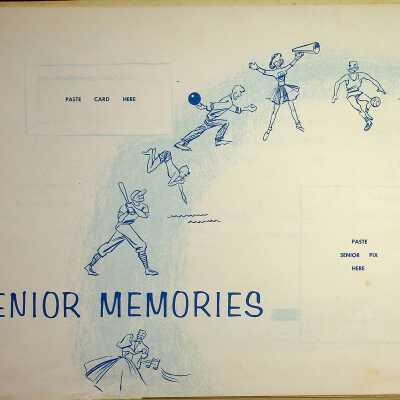 PASTE CARD HERE
PASTE
SENIOR PIX
HERE
ENIOR MEMORIES